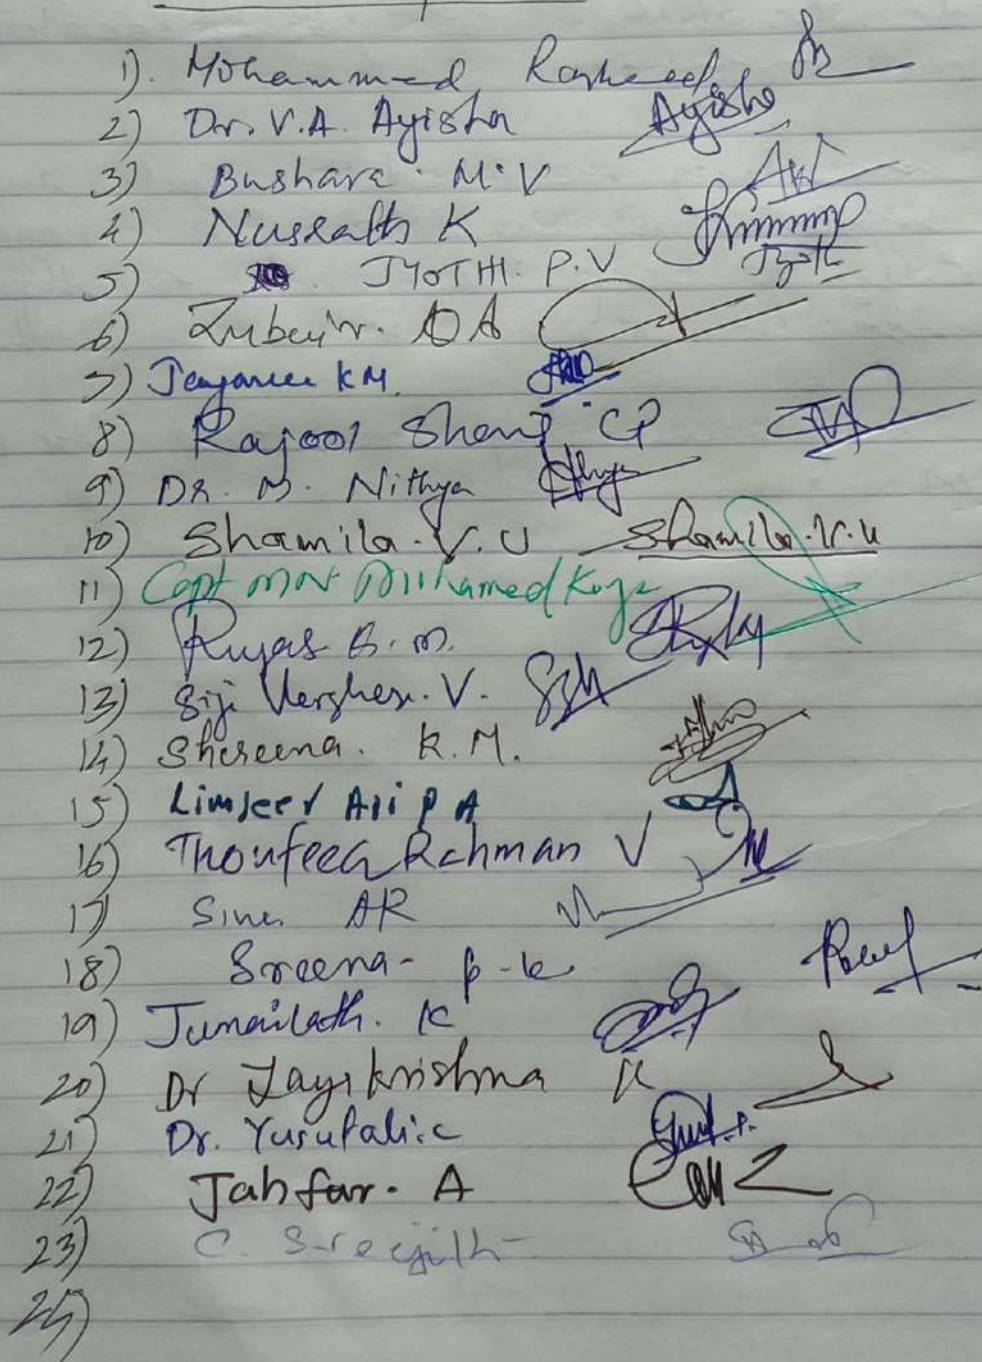 1). Mohammed Rasheed
2) Dr. V.A. Ayisha Ayisha
3) Bushara. M.V
4) Nussrath K
5) JYOTHI. P.V Jyothi
6) Zubair. A A
7) KM.
8) CP
9) Dr. N. Nithya
10) Shamila. V.U Shamila.V.U
11) Capt MN Muhamed Koya
12) Rujas B.M.
13) Siji Verghese. V.
14) Shereena. K.M.
15) Limseer Ali P A
16) Thoufeeq Rahman V
17) AR
18) Sreena- p-k
19) Junailath. K
20) Dr Jayakrishna K
21) Dr. Yusufali.c
22) Jahfar. A
23) C. Sreejith